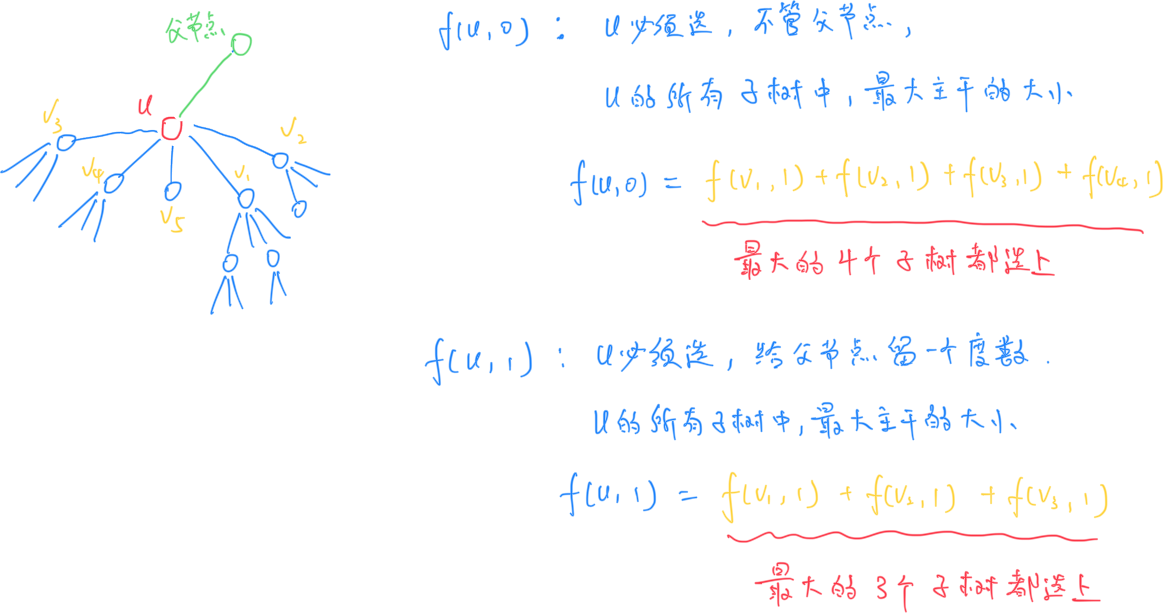 父节点
u
v₃
v₂
v₄
v₁
v₅
f(u,0): u必须选，不管父节点，
u的所有子树中，最大主干的大小
f(u,0) = f(v₁,1)+f(v₂,1)+f(v₃,1)+f(v₄,1)
最大的4个子树都选上
f(u,1): u必须选，给父节点留一个度数.
u的所有子树中，最大主干的大小
f(u,1) = f(v₁,1)+f(v₂,1)+f(v₃,1)
最大的3个子树都选上